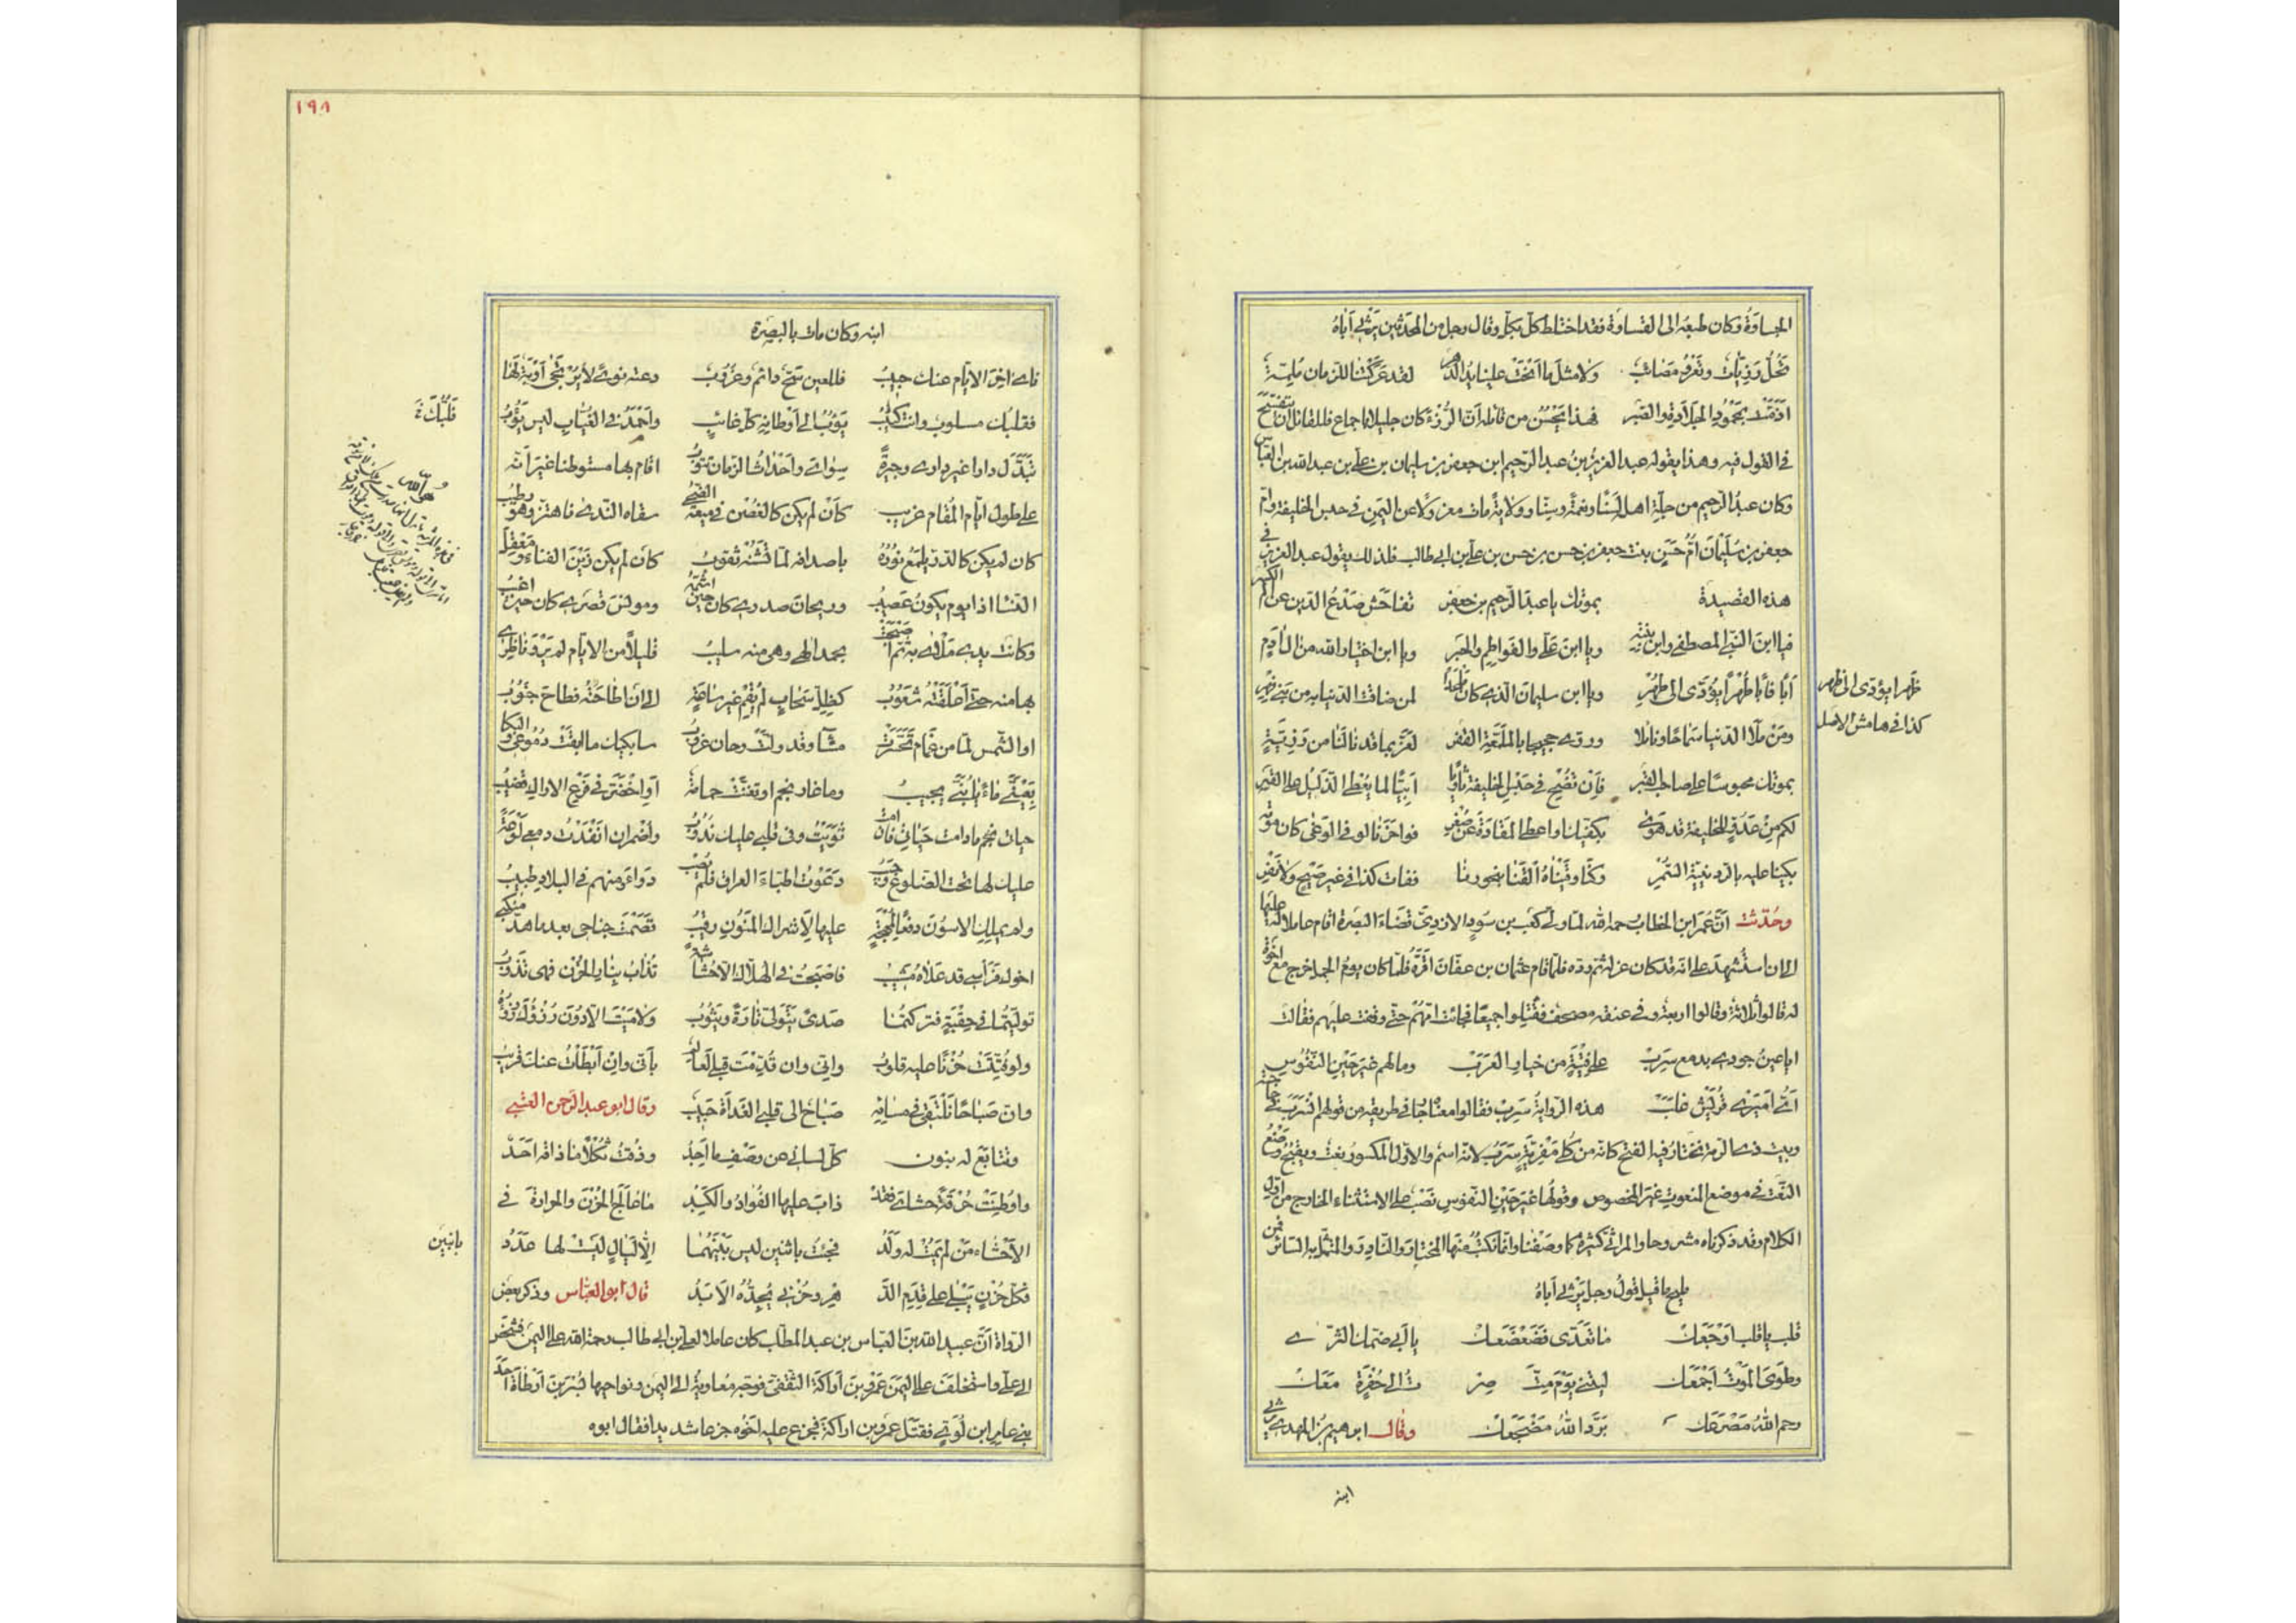 الجساوة وكان طبعه الى القساوة فقد اختلط كل بكل وقال رجل من المحدثين يرثى اباه
تحل رزيات وتعرو مصائب ولا مثل ما انحت علينا يد الدهر لقد عركتنا للزمان ملمة
اذمت بمحمود الجلادة والصبر فهذا يحسن من قائله ان الرزء كان جليلا باجماع فللقائل ان يتفسح
فى القول فيه وهذا يقوله عبد العزيز بن عبد الرحيم ابن جعفر بن سليمان بن على بن عبد الله بن العباس
وكان عبد الرحيم من جلة اهل لسنا ونعمة وسنا وولاية مات معزولا عن اليمن فى حبس الخليفة وام
جعفر بن سليمان ام حسن بنت جعفر بن حسن بن حسن بن على بن ابى طالب فلذلك يقول عبد العزيز فى
هذه القصيدة بموتك يا عبد الرحيم بن جعفر تفاحش صدع الدين عن الم الكسر
فيا ابن النبى المصطفى وابن بنته ويا ابن على والفواطم والحبر ويا ابن اختيار الله من آل آدم
ابا فابا طهرا يؤدى الى طهر ويا ابن سليمان الذى كان ملجأ لمن ضاقت الدنيا به من بنى فهر
ومن ملأ الدنيا سماحا ونائلا وروى حجيجا بالملمعة القفر لعز بما قد نالنا من رزية
بموتك محبوسا على صاحب القبر فان تضح فى حبس الخليفة ثاويا ابيا لما يعطى الذليل على القسر
لكم من عدو للخليفة قد هوى بكفيك او اعطى المقادة عن صغر فواحزنا لو فى الوغى كان موته
بكينا عليه بالردينية السمر وكنا وقيناه القنا بنحورنا ففات كذا فى غير ضيح ولا نفر
وحدثت ان عمر ابن الخطاب رحمه الله لما ولى كعب بن سور الازدى قضاء البصرة اقام عاملا له عليها
الى ان استشهد على انه قد كان عزله ثم رده فلما قام عثمان بن عفان اقره فلما كان يوم الجمل خرج مع اخوة
له قالوا ثلاثة وقالوا اربعة وفى عنقه مصحف فقتلوا جميعا فجاءت امهم حتى وقفت عليهم فقالت
ايا عين جودى بدمع سرب على فتية من خيار العرب وما لهم غير حين النفوس
اى اميرى قريش غلب هذه الرواية سرب فقالوا معناه جار فى طريقه من قولهم انسرب فى حاجته
وبيت ذى الرمة يختار فيه الفتح كانه من كلى مفرية سرب لانه اسم والاول المكسور نعت ويقبح وضع
النعت فى موضع المنعوت غير المخصوص وقولها غير حين النفوس نصب على الاستثناء الخارج من اول
الكلام وقد ذكرناه مشروحا والمراثى كثيرة كما وصفنا وانما نكتب منها المختار والنادر والمتمثل به السائر فمن
مليح ما قيل قول رجل يرثى اباه
قلب يا قلب اوجعك ما تعدى فضعضعك يا ابى ضمك الثرى
وطوى الموت اجمعك ليتنى يوم مت صرت الى حفرة معك
رحم الله مصرعك برد الله مضجعك وقال ابرهيم بن المهدى يرثى
ابنه
ظهرا يؤدى الى ظهر
كذا فى هامش الاصل
١٩٨
ابنه وكان مات بالبصرة
نأى اخر الايام عنك حبيب فللعين سح دائم وغروب دعته نوى لا يرتجى اوبة لها
فقلبك مسلوب وانت كئيب يؤوب الى اوطانه كل غائب واحمد فى الغياب ليس يؤوب
تبدل دارا غير دارى وجيرة سواى واحداث الزمان تنوب اقام بها مستوطنا غير انه
على طول ايام المقام غريب كأن لم يكن كالغصن فى ميعة الضحى سقاه الندى فاهتز وهو رطيب
كان لم يكن كالدر يلمع نوره باصدافه لما تشنه ثقوب كان لم يكن زين الفناء ومعقل
النساء اذا يوم يكون عصيب وريحان صدرى كان حين اشمه ومونس قصرى كان حين اغيب
وكانت يدى ملأى به ثم اصبحت بحمد الهى وهى منه سليب قليلا من الايام لم يرو ناظرى
بها منه حتى اعلقته شعوب كظل سحاب لم يقم غير ساعة الى ان اطاحته فطاح جنوب
او الشمس لما من غمام تحسرت مساء وقد ولت وحان غروب سابكيك ما ابقت دموعى والبكا
بعينى ماء يا بنى يجيب وما غار نجم او تغنت حمامة او اخضر فى فرع الاراك قضيب
حياتى فحم ما دامت حياتى فان امت ثويت وفى قلبى عليك ندوب واضمر ان انفدت دمعى لوعة
عليك لها تحت الضلوع وجيب دعوت اطباء العراق فلم يصب دواءك منهم فى البلاد طبيب
ولم يملك الاسون دفعا لمهجة عليها لاشراك المنون رقيب قصمت جناحى بعد ما هد منكبى
اخوك فراسى قد علاه مشيب فاصبحت فى الهلاك الا حشاشة تذاب بنار الحزن فهى تذوب
توليتما فى حقبة فتركتما صدى يتولى تارة ويثوب ولا ميت الا دون رزئك رزؤه
ولو فتتت حزنا عليه قلوب وانى وان قدمت قبلى لعالم بانى وان ابطأت عنك قريب
وان صباحا نلتقى فى مسائه صباح الى قلبى الغداة حبيب وقال ابو عبد الرحمن العتبى
وتتابع له بنون كل لسانى عن وصف ما اجد وذقت ثكلا ما ذاقه احد
واوطنت حرقة حشاى فقد ذاب عليها الفواد والكبد ما عالج الحزن والحرارة فى
الاحشاء من لم يمت له ولد فجعت باثنين ليس بينهما الا ليال ليت لها عدد
فكل حزن يبلى على قدم الد هر وحزنى يجده الابد قال ابو العباس وذكر بعض
الرواة ان عبيد الله بن العباس بن عبد المطلب كان عاملا لعلى بن ابى طالب رحمة الله على اليمن فشخص
الى على واستخلف على اليمن عمرو بن اراكة الثقفى فوجه معاوية الى اليمن ونواحيها بسر بن ارطاة احد
بنى عامر ابن لؤى فقتل عمرو بن اراكة فجزع عليه اخوه جزعا شديدا فقال ابوه
قلبك
هو الله
باثنين